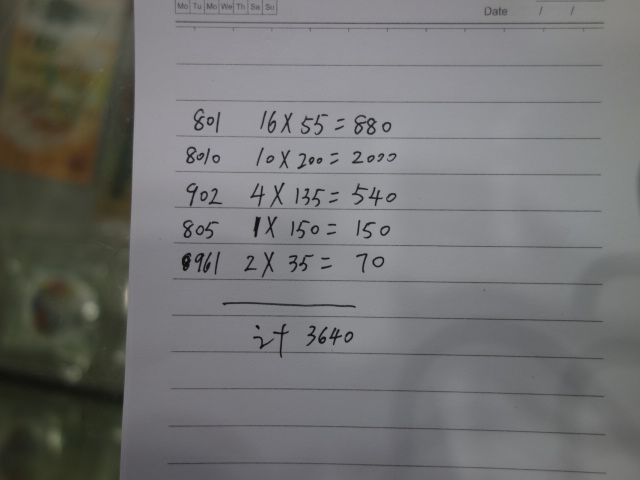 Mo Tu Mo We Th Sa Su
Date / /
801 16 X 55 = 880
8010 10 X 200 = 2000
902 4 X 135 = 540
805 1 X 150 = 150
961 2 X 35 = 70
计 3640